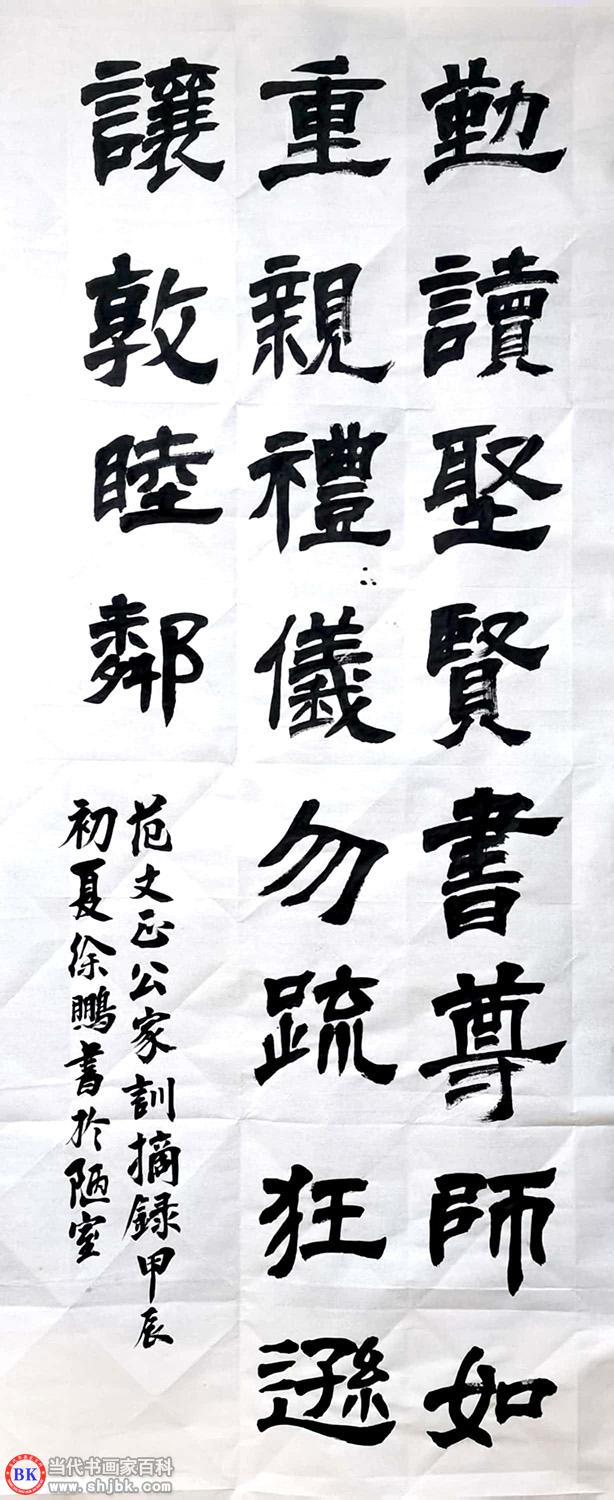 勤讀聖賢書尊師如
重親禮儀勿疏狂遜
讓敦睦鄰
范文正公家訓摘録甲辰
初夏徐鵬書於陋室
BK
当代书画家百科
www.shjbk.com